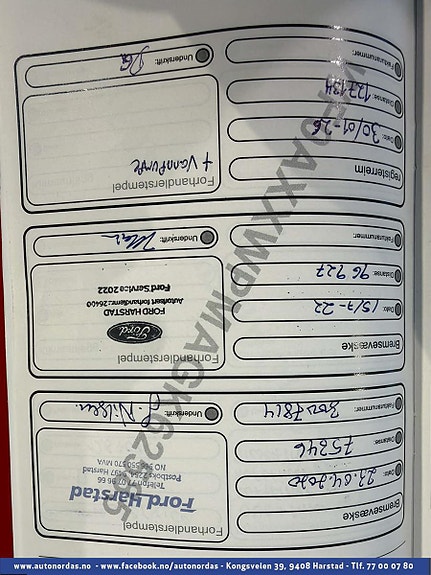 Bremsevæske
Dato: 23.04.2020
Distanse: 75846
Fakturanummer: 3007814
Forhandlerstempel
Ford Harstad
Telefon 77 07 96 66
Postboks 2264, 9497 Harstad
Underskrift: J. Nilsen
Bremsevæske
Dato: 15/7-22
Distanse: 96927
Fakturanummer:
Forhandlerstempel
Ford
FORD HARSTAD
Autorisert forhandlernr.: 26400
Ford Service 2022
Underskrift:
registerreim
Dato: 30/01-26
Distanse: 127134
Fakturanummer:
Forhandlerstempel
+ Vannpumpe
Underskrift:
www.autonordas.no - www.facebook.no/autonordas - Kongsveien 39, 9408 Harstad - Tlf. 77 00 07 80